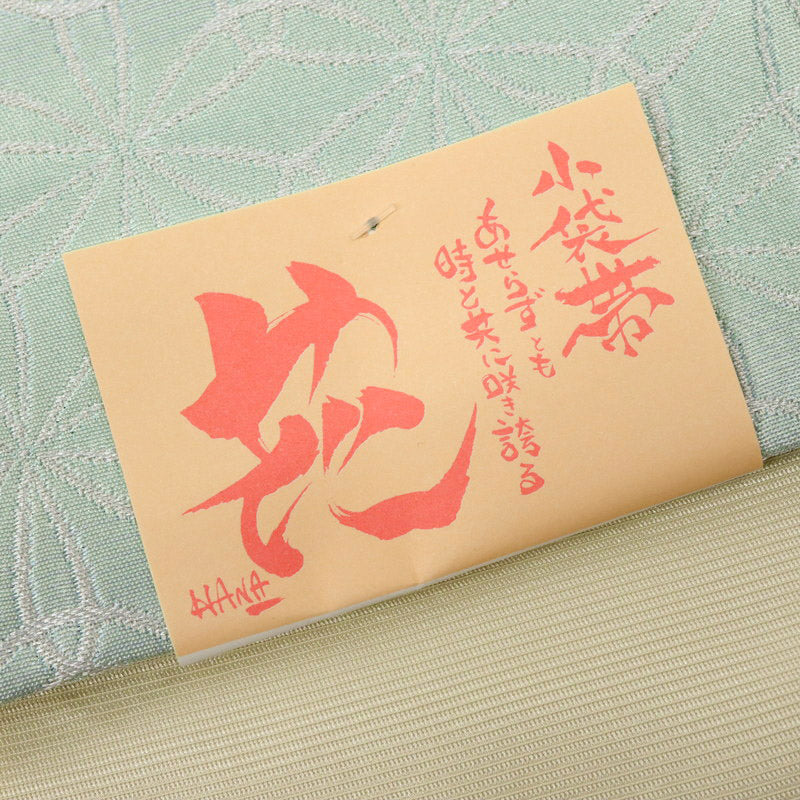 小袋帯
あせらずとも
時と共に咲き誇る
花
HANA